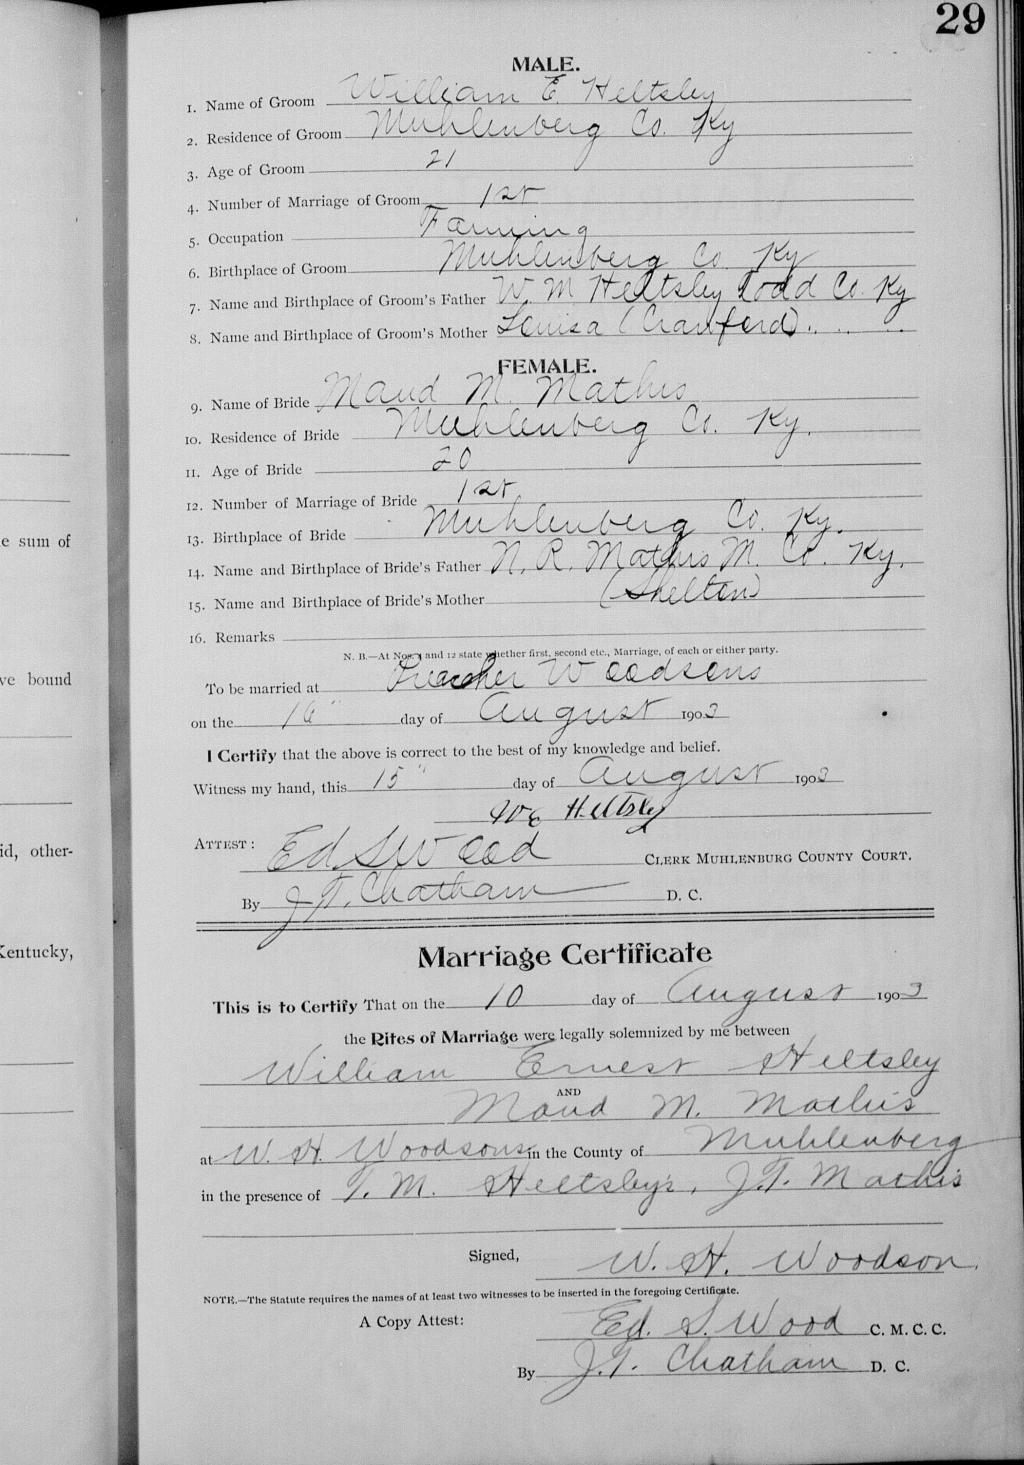 29
MALE.
1. Name of Groom William E. Heltsley
2. Residence of Groom Muhlenberg Co. Ky
3. Age of Groom 21
4. Number of Marriage of Groom 1st
5. Occupation Farming
6. Birthplace of Groom Muhlenberg Co. Ky
7. Name and Birthplace of Groom's Father W. M Heltsley Todd Co. Ky
8. Name and Birthplace of Groom's Mother Louisa (Crawford) . . . .
FEMALE.
9. Name of Bride Maud M. Mathis
10. Residence of Bride Muhlenberg Co. Ky.
11. Age of Bride 20
12. Number of Marriage of Bride 1st
13. Birthplace of Bride Muhlenberg Co. Ky.
14. Name and Birthplace of Bride's Father N. R. Mathis M. Co. Ky.
15. Name and Birthplace of Bride's Mother (Shelton)
16. Remarks
N. B.—At Nos. 4 and 12 state whether first, second etc., Marriage, of each or either party.
To be married at Preacher Woodsons
on the 16" day of August 1903
I Certify that the above is correct to the best of my knowledge and belief.
Witness my hand, this 15" day of August 1903
W E Heltsley
ATTEST: Ed S Wood CLERK MUHLENBURG COUNTY COURT.
By J. T. Chatham D. C.
Marriage Certificate
This is to Certify That on the 10 day of August 1903
the Rites of Marriage were legally solemnized by me between
William Ernest Heltsley
AND
Maud M. Mathis
at W. H. Woodsons in the County of Muhlenberg
in the presence of T. M. Heltsley's, J. T. Mathis
Signed, W. H. Woodson.
NOTE.—The Statute requires the names of at least two witnesses to be inserted in the foregoing Certificate.
A Copy Attest: Ed. S. Wood C. M. C. C.
By J. T. Chatham D. C.
e sum of
ve bound
id, other-
Kentucky,